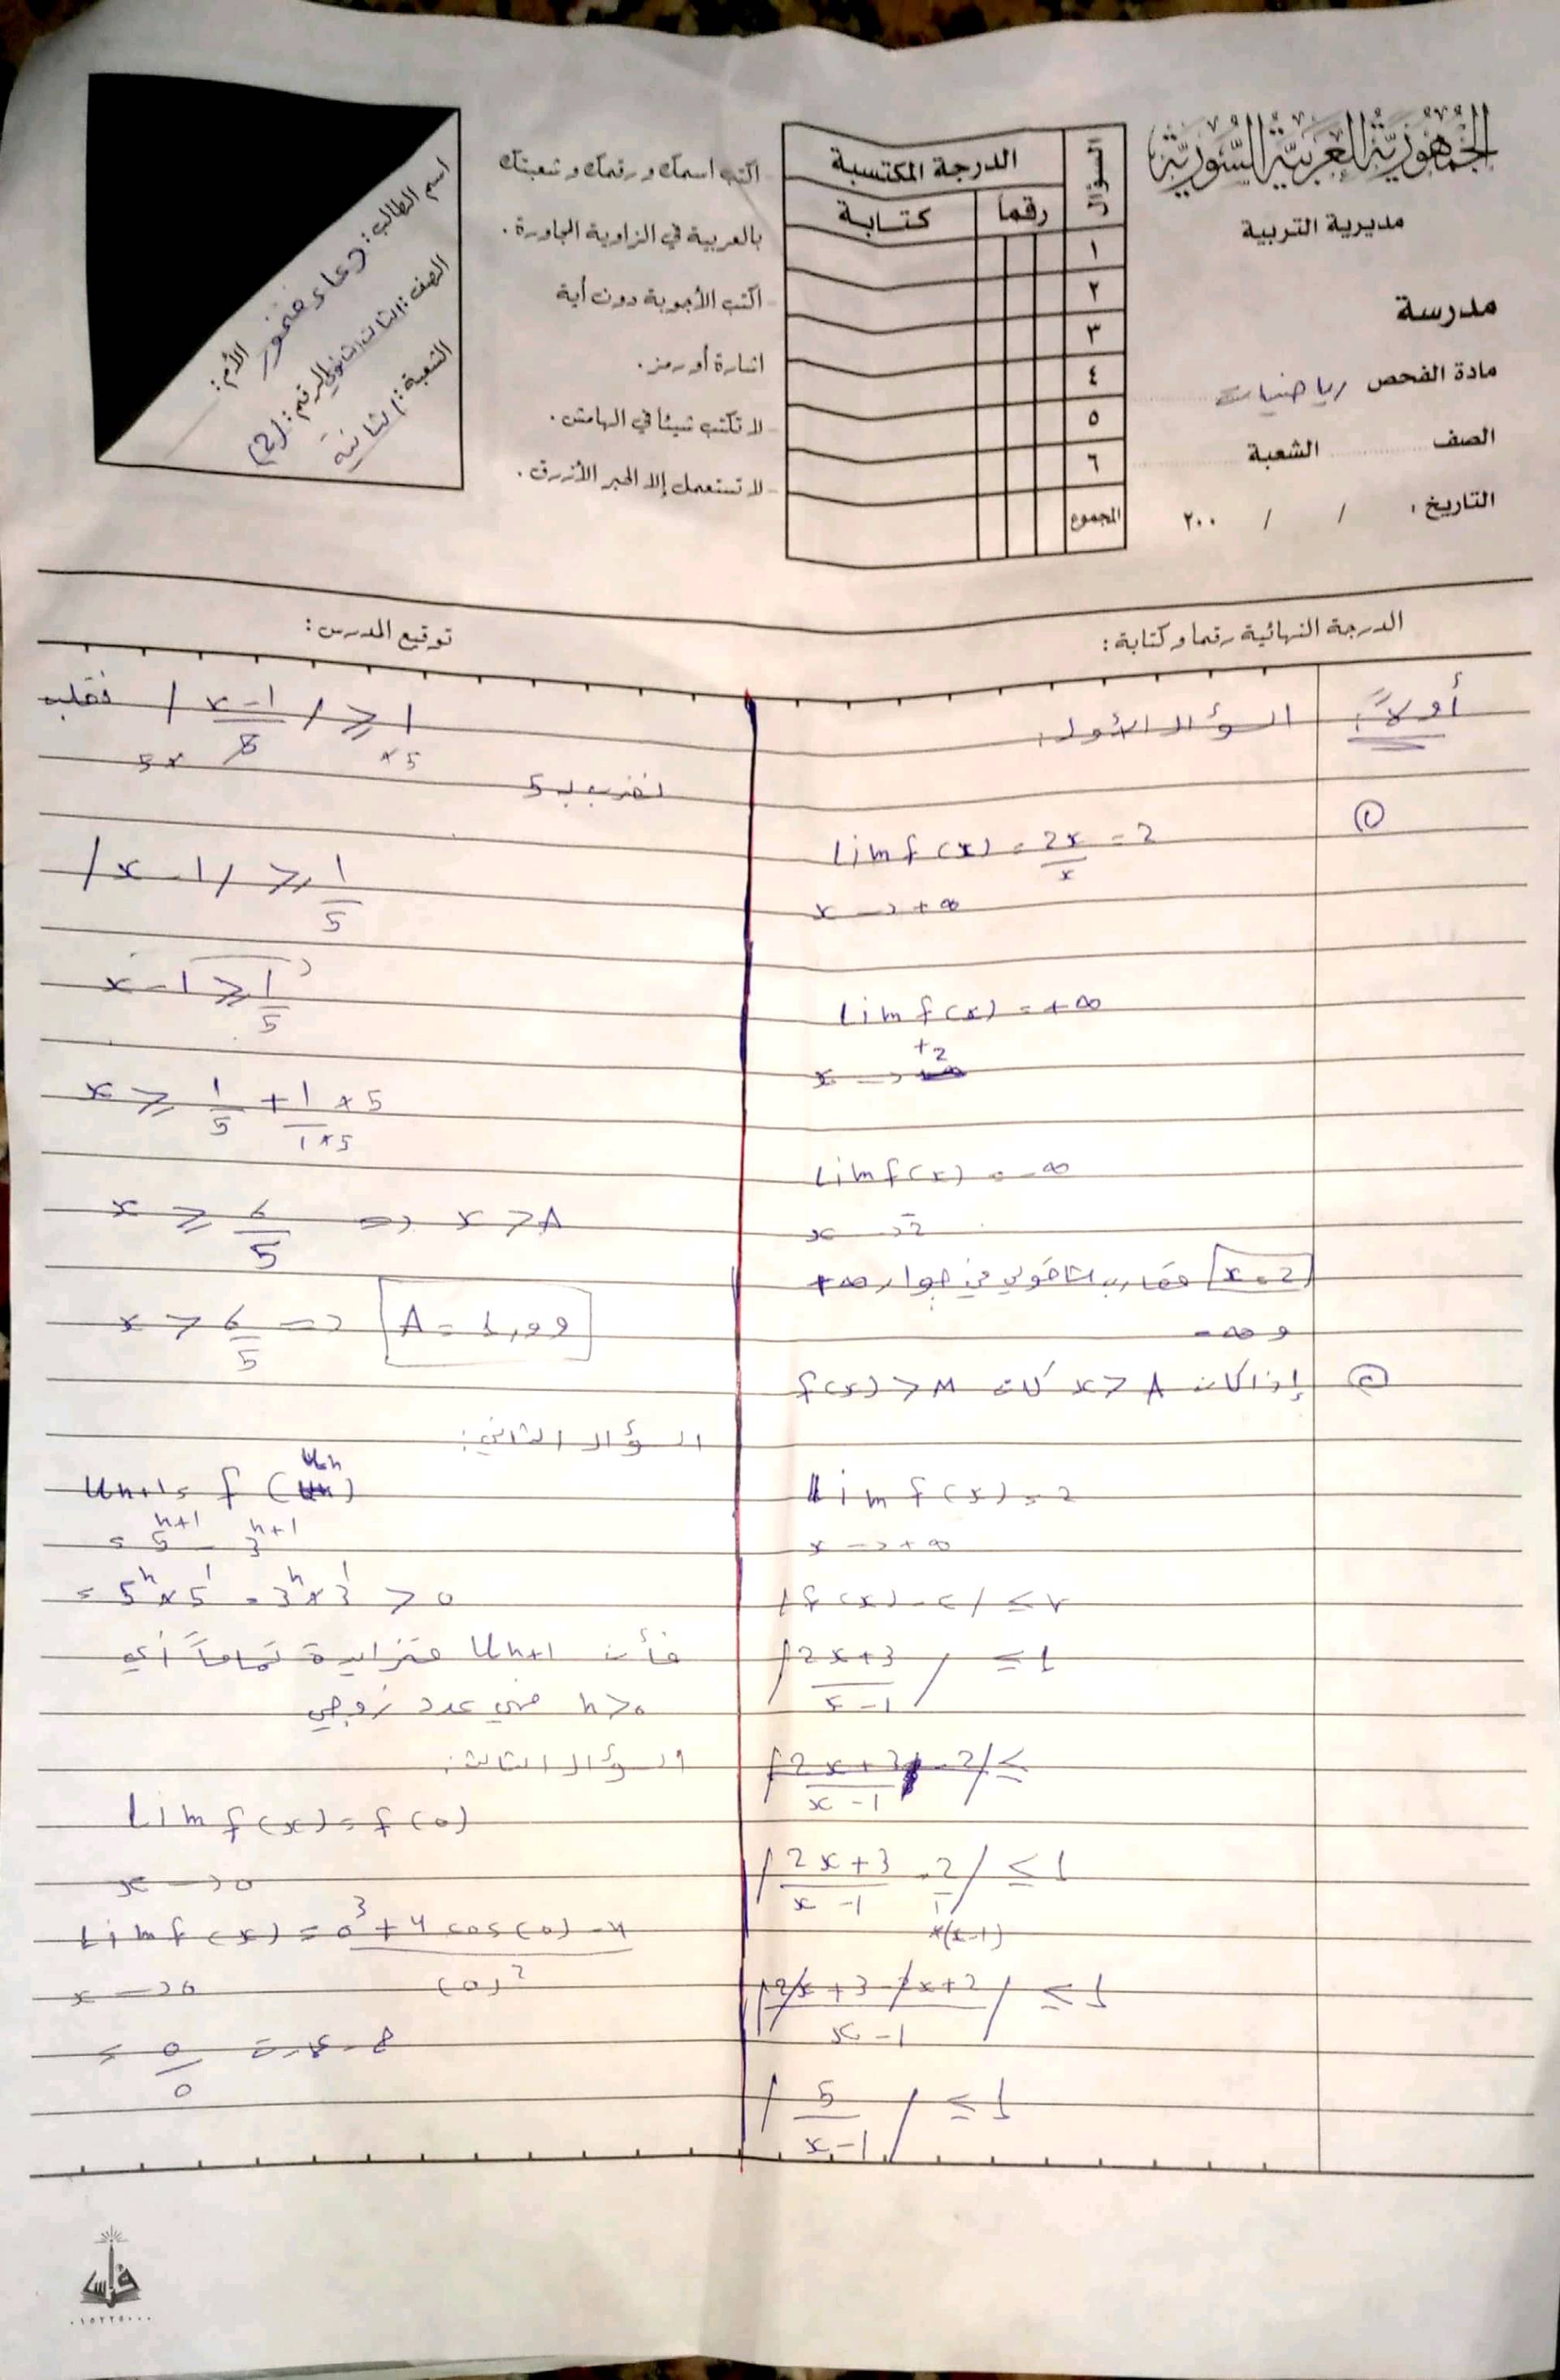 الجمهورية العربية السورية
مديرية التربية
مدرسة
مادة الفحص رياضيات
الصف الشعبة
التاريخ: / / ٢٠٠
السؤال
الدرجة المكتسبة
رقماً كتابة
١
٢
٣
٤
٥
٦
المجموع
- اكتب اسمك ورقمك وشعبتك
بالعربية في الزاوية المجاورة.
اكتب الأجوبة دون أية
اشارة أو رمز.
- لا تكتب شيئا في الهامش.
- لا تستعمل إلا الحبر الأزرق.
اسم الطالب: دعاء
الأم:
الصف: الثالث الثانوي الرقم: (2)
الشعبة: الثانية
الدرجة النهائية رقما وكتابة:
توقيع المدرس:
أولاً: السؤال الأول:
①
lim f(x) = 2x/x = 2
x → +∞
lim f(x) = +∞
x → +2
lim f(x) = -∞
x → -2
x = 2 مقارب شاقولي في جوار +∞
و -∞
② إذا كان x > A كان f(x) > M
lim f(x) = 2
x → +∞
|f(x) - L| ≤ r
|2x+3 / x-1| ≤ 1
|2x+3 / x-1 - 2| ≤
|2x+3 / x-1 - 2/1| ≤ 1
×(x-1)
|2x+3-2x+2 / x-1| ≤ 1
|5 / x-1| ≤ 1
نقلب |x-1 / 5| ≥ 1
5× ×5
نضرب ب 5
|x-1| ≥ 1/5
x-1 ≥ 1/5
x ≥ 1/5 + 1×5 / 1×5
x ≥ 6/5 ⇒ x > A
x > 6/5 ⇒ A = 1,99
السؤال الثاني:
Un+1 = f(Un)
= 5^n+1 - 3^n+1
= 5^n × 5^1 - 3^n × 3^1 > 0
فأن Un+1 متزايدة تماماً أي
n > 0 فهي عدد زوجي
السؤال الثالث:
lim f(x) = f(0)
x → 0
lim f(x) = 0^3 + 4 cos(0) - 4 / (0)^2
x → 0
= 0/0 ح.ع.ت
فراس